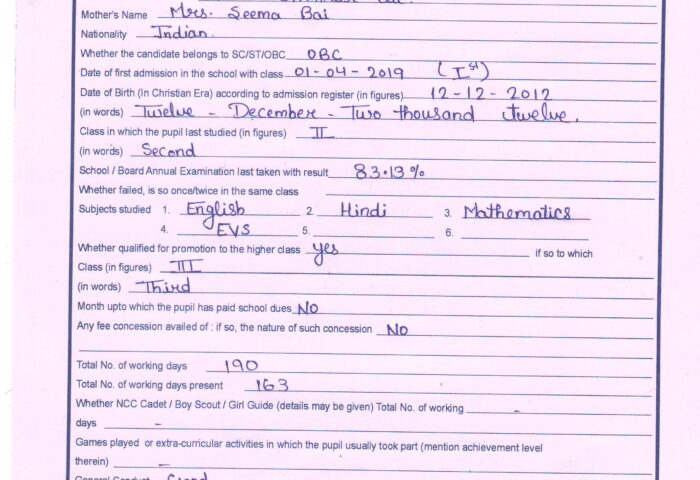 Mother's Name Mrs. Seema Bai
Nationality Indian.
Whether the candidate belongs to SC/ST/OBC OBC
Date of first admission in the school with class 01-04-2019 (Ist)
Date of Birth (In Christian Era) according to admission register (in figures) 12-12-2012
(in words) Twelve - December - Two thousand twelve.
Class in which the pupil last studied (in figures) II
(in words) Second
School / Board Annual Examination last taken with result 83.13%
Whether failed, is so once/twice in the same class
Subjects studied 1. English 2. Hindi 3. Mathematics
4. EVS 5. 6.
Whether qualified for promotion to the higher class yes if so to which
Class (in figures) III
(in words) Third
Month upto which the pupil has paid school dues NO
Any fee concession availed of : if so, the nature of such concession No
Total No. of working days 190
Total No. of working days present 163
Whether NCC Cadet / Boy Scout / Girl Guide (details may be given) Total No. of working -
days -
Games played or extra-curricular activities in which the pupil usually took part (mention achievement level
therein) -
General Conduct Good